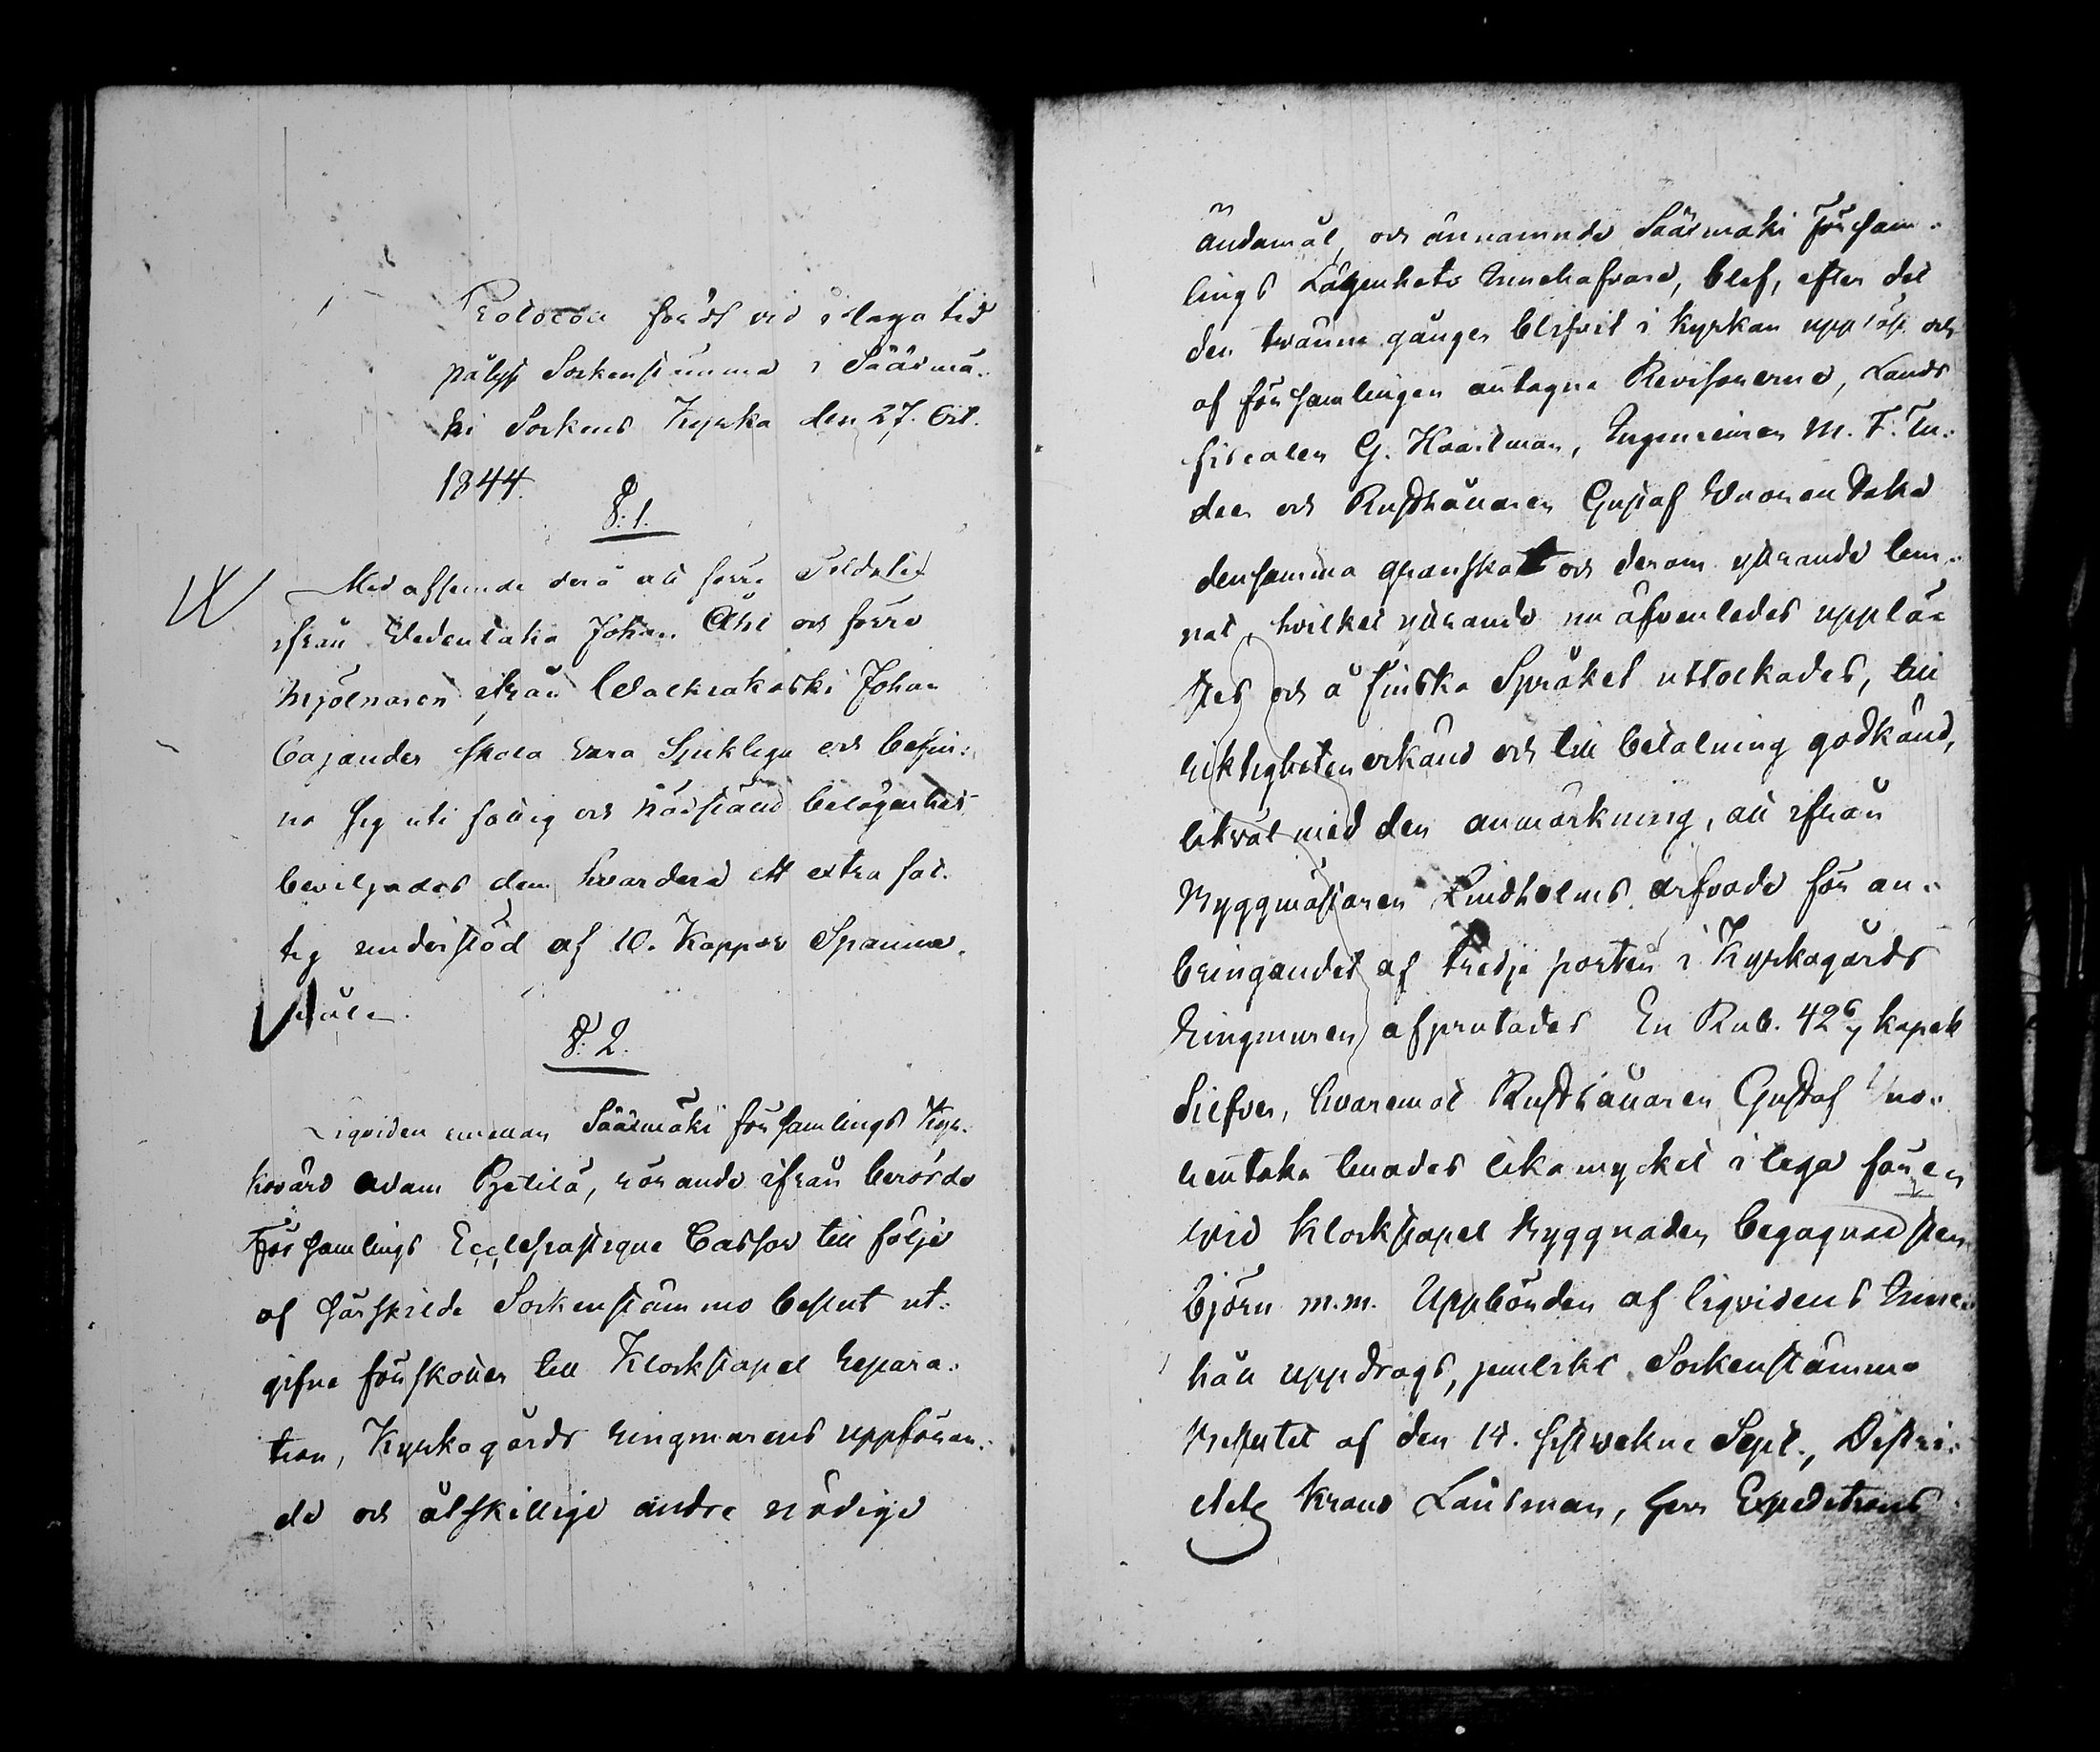 Protocoll fördt vid i laga tid
pålyst Sockenstämma i Sääxmä-
ki Sockens Kyrka den 27. Oct.
1844.
§. 1.
Med afseende derå att förre Soldaten
ifrån Wedentaka Johan Åhl och förre
Mjölnaren ifrån Walkiakoski Johan
Cajander skola vara Sjuklige och befin-
na sig uti fattig och nödstäld belägenhet
beviljades dem hvardera ett extra fat-
tig understöd af 10. Kappar Spanne-
mål.
§. 2.
Liqviden emellan Sääxmäki församlings Kyr-
kovärd Adam Pjetilä, rörande ifrån berörde
Församlings Ecclesiastique Cassor till följe
af särskilde Sockenstämmo beslut ut-
gifne förskotter till Klockstapel repara-
tion, Kyrkogårds ringmurens uppföran-
de och åtskillige andre nödige
ändamål, och ännämnde Sääxmäki Församl-
lings Lägenhets Innehafvare, blef, efter det
den tvänne gånger blifvit i Kyrkan uppläst och
af församlingen antagne Revisorerne, Lands
fiscalen G. Haartman, Ingenieuren M. F. In-
deen och Rusthållaren Gustaf Wuorentaka
densamma granskat och derom yttrande lem-
nat, hvilket yttrande nu äfvenledes upplä-
stes och å finska Språket uttolkades, till
riktigheten erkänd och till betalning godkänd,
likväl med den anmärkning, att ifrån
Byggmästaren Lindholms arfvode för an-
bringandet af tredje porten i Kyrkogårds
Ringmuren afprutades En Rub. 42 6/7 kopek
Silfver, hvaremot Rusthållaren Gustaf Wuo-
rentaka lemnades lika mycket i lega för en
vid Klockstapel Byggnaden begagnad sten
Björn m.m. Uppbörden af liqvidens Inne-
håll uppdrogs, jemlikt Sockenstämmo
Beslutet af den 14. sistvekne Sept., Distri-
ctets Krono Länsman, Herr Expeditions